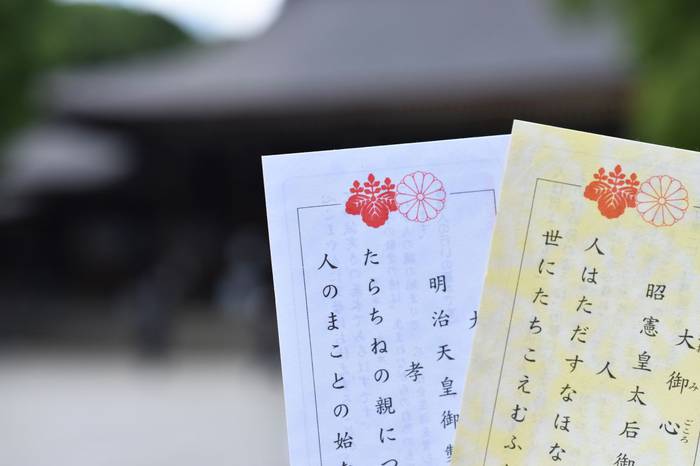 大
明治天皇御製
孝
たらちねの親につ
人のまことの始
大御心
み ごころ
昭憲皇太后御
人
人はただすなほな
世にたちこえむふ